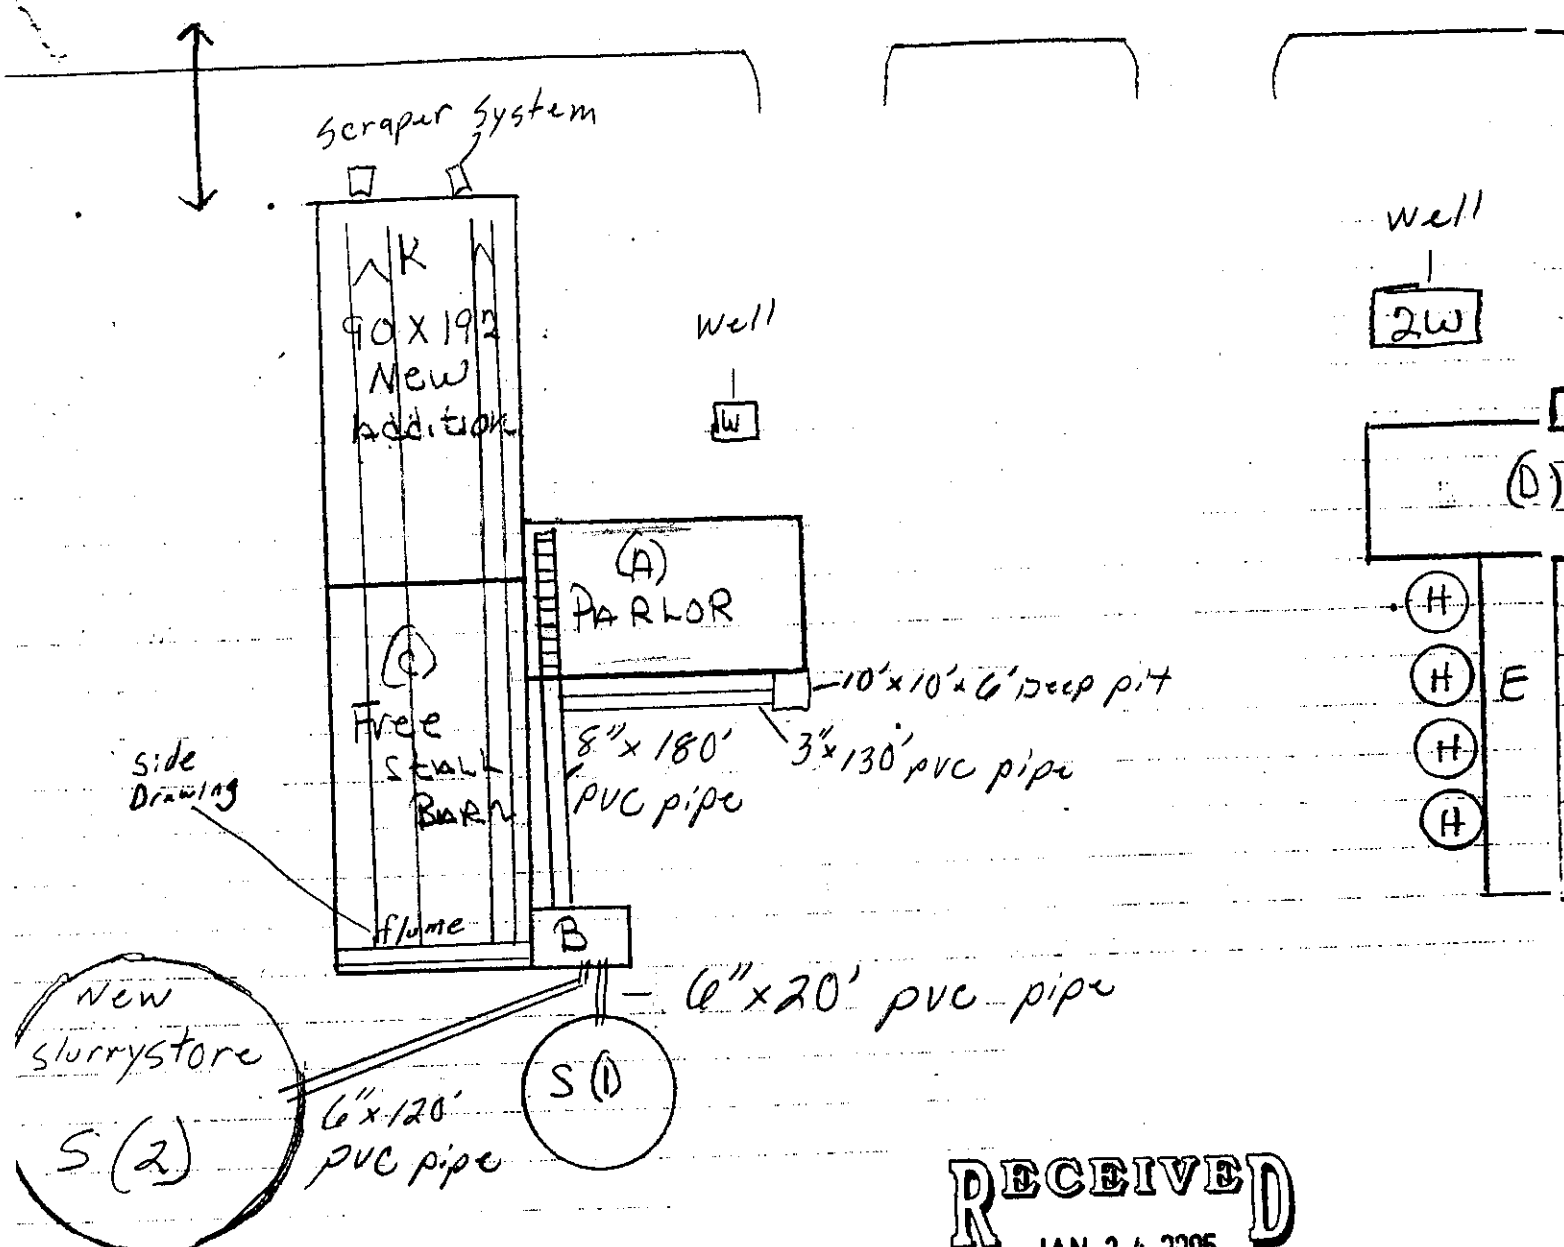 Scraper System
K
90 X 192
New
Addition
Well
W
Well
2W
(D)
(A)
PARLOR
(C)
Free
STALL
BARN
10'x10'x6' Deep pit
8"x 180'
PVC pipe
3"x130' pvc pipe
Side
Drawing
flume
B
6"x20' pvc pipe
New
Slurrystore
S (2)
6"x120'
PVC pipe
S (1)
H
H
H
H
E
RECEIVED